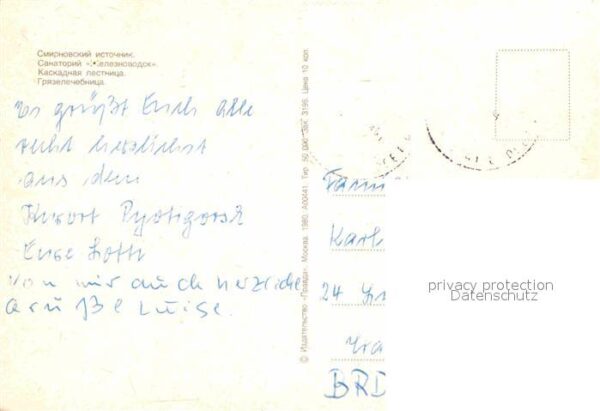 Смирновский источник.
Санаторий «Железноводск».
Каскадная лестница.
Грязелечебница.
Es grüßt Euch alle
recht herzlichst
aus dem
Kurort Pyatigorsk
Eure Lotti
Von mir auch herzliche
Grüße Luise.
© Издательство «Правда». Москва. 1980. А00241. Тип. Зак. 3196. Цена 10 коп.
Fam
Karl
24
BRD
privacy protection
Datenschutz